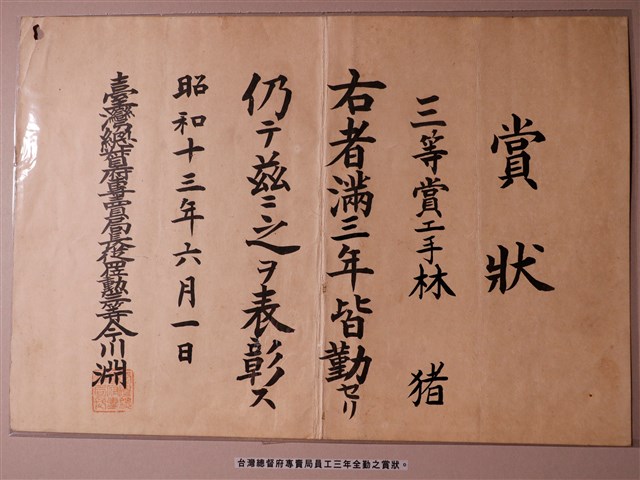 賞狀
三等賞 工手 林 猪
右者滿三年皆勤セリ
仍テ茲ニ之ヲ表彰ス
昭和十三年六月一日
臺灣總督府專賣局長從四位勲三等今川淵
台灣總督府專賣局員工三年全勤之賞狀。